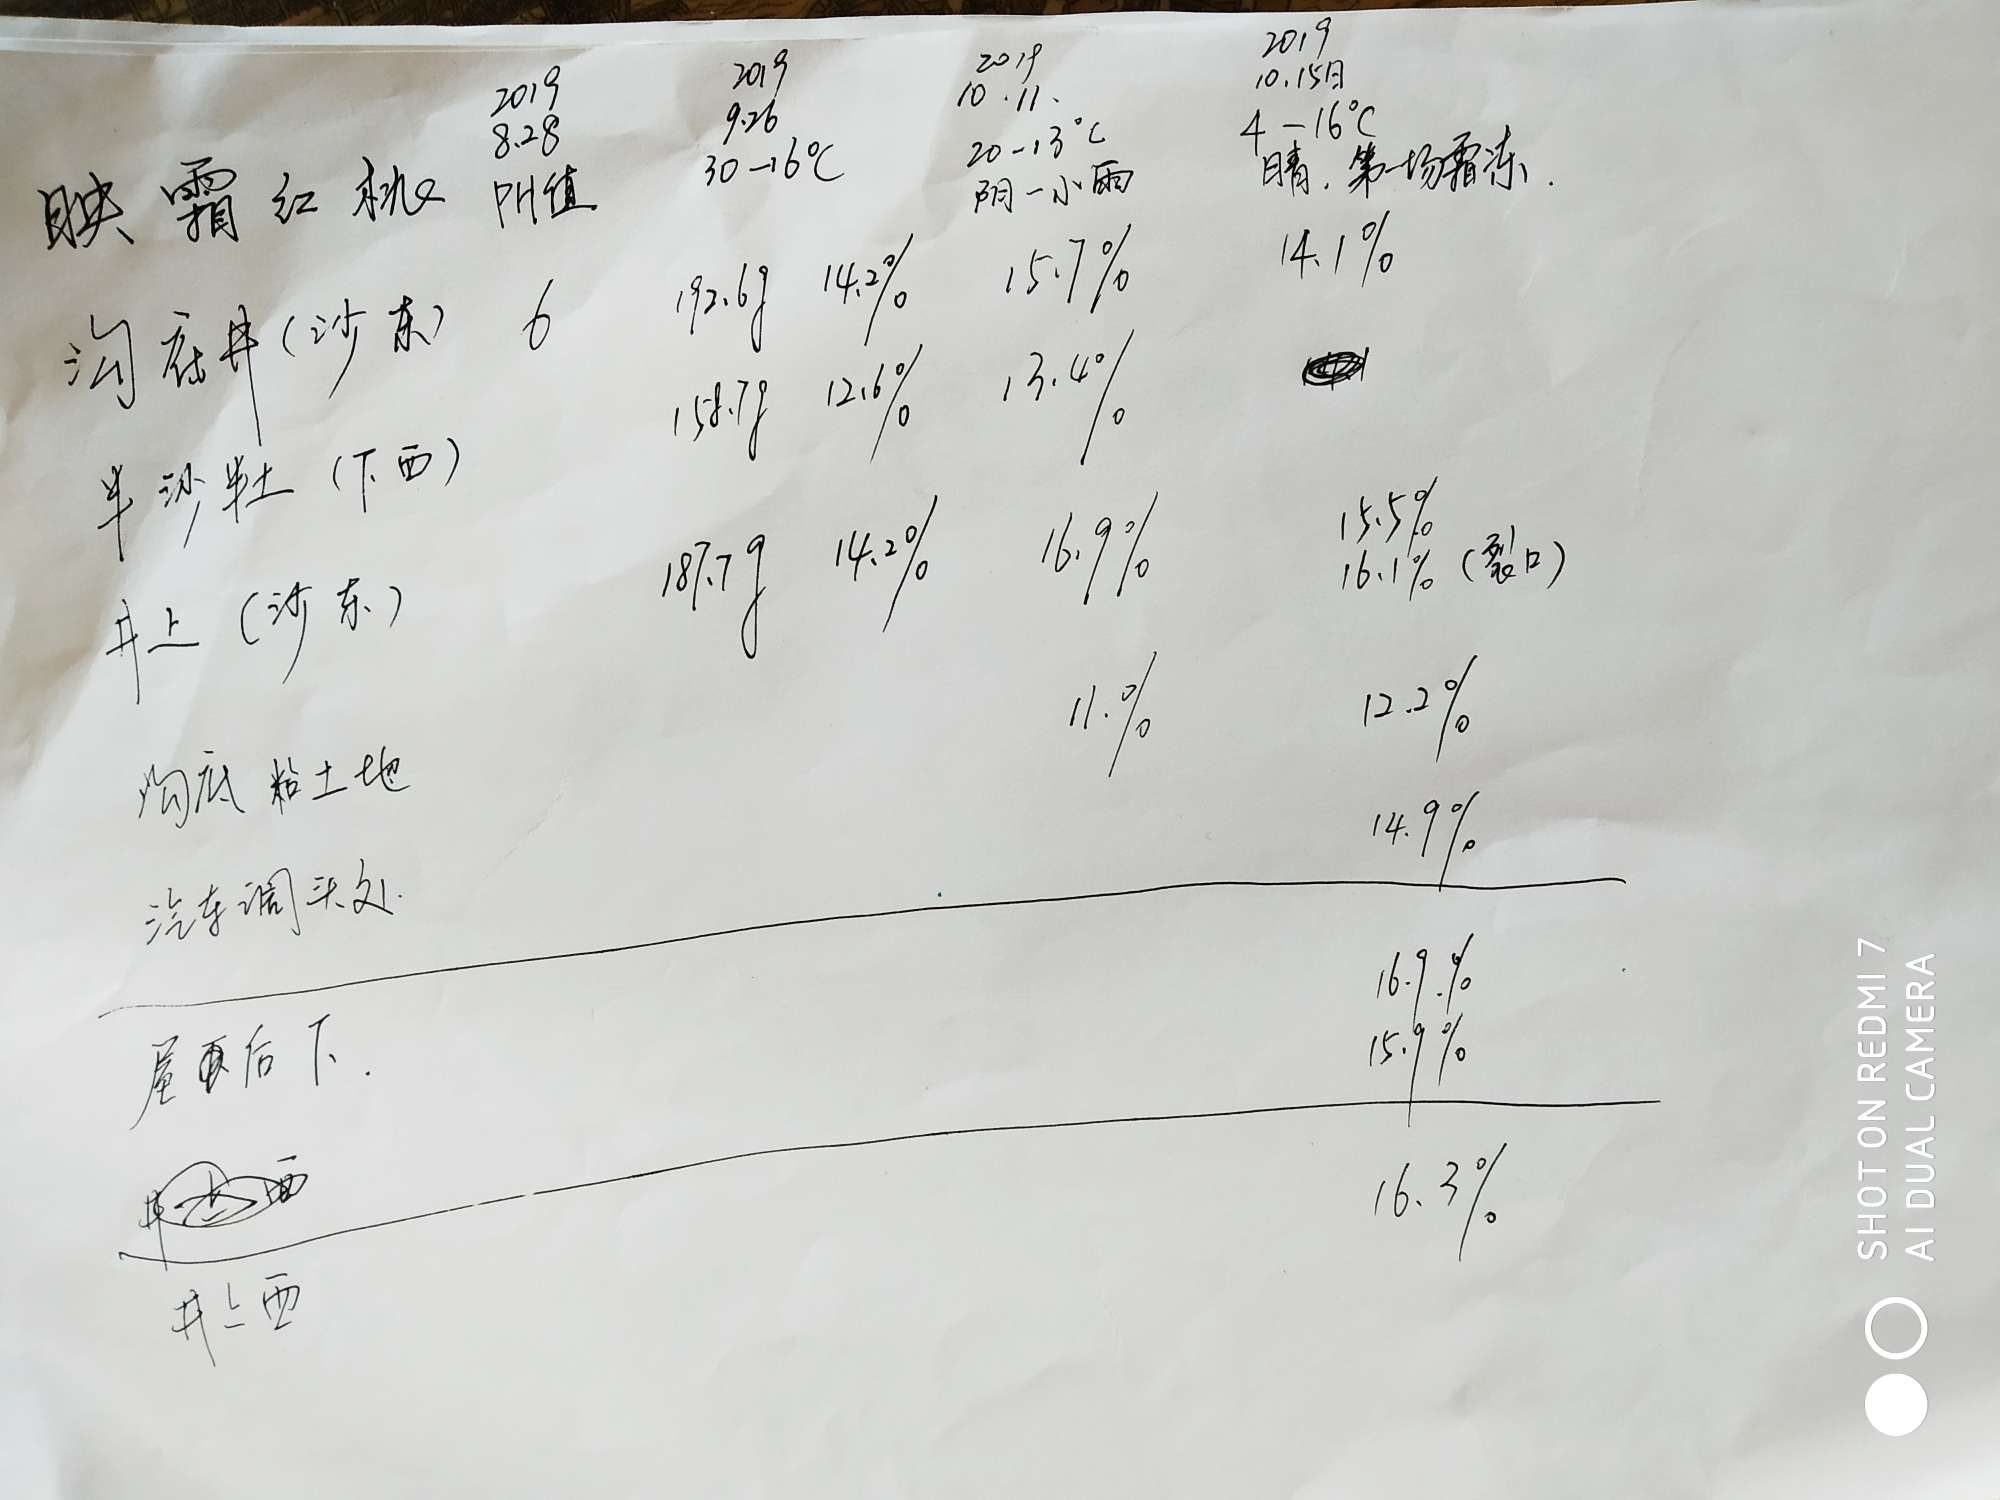 2019 2019 2019 2019
8.28 9.26 10.11. 10.15日
映霜红桃 PH值 30-16℃ 20-13℃ 4-16℃
阴-小雨 晴.第一场霜冻.
沟底井(沙东) 6 192.6g 14.2% 15.7% 14.1%
半沙半土(下西) 158.7g 12.6% 13.4%
井上(沙东) 187.7g 14.2% 16.9% 15.5%
16.1%(裂口)
沟底粘土地 11.% 12.2%
汽车调头处. 14.9%
屋后下. 16.9.%
15.9%
井上西 16.3%
SHOT ON REDMI 7
AI DUAL CAMERA